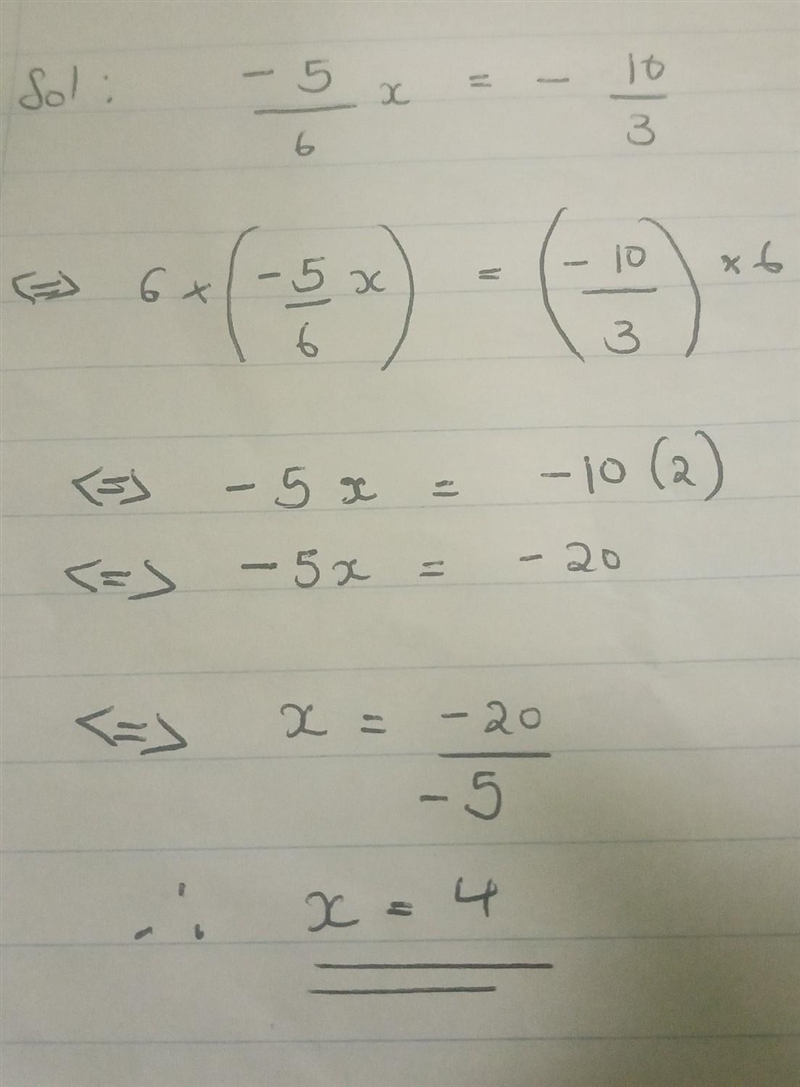 Sol: -5/6 x = - 10/3
<=> 6 × (-5/6 x) = (-10/3) × 6
<=> -5x = -10(2)
<=> -5x = -20
<=> x = -20/-5
∴ x = 4